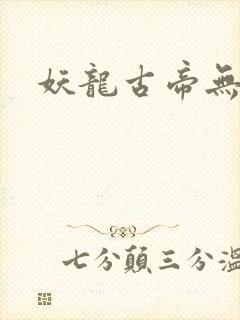 妖龍古帝無
七分顛三分溫